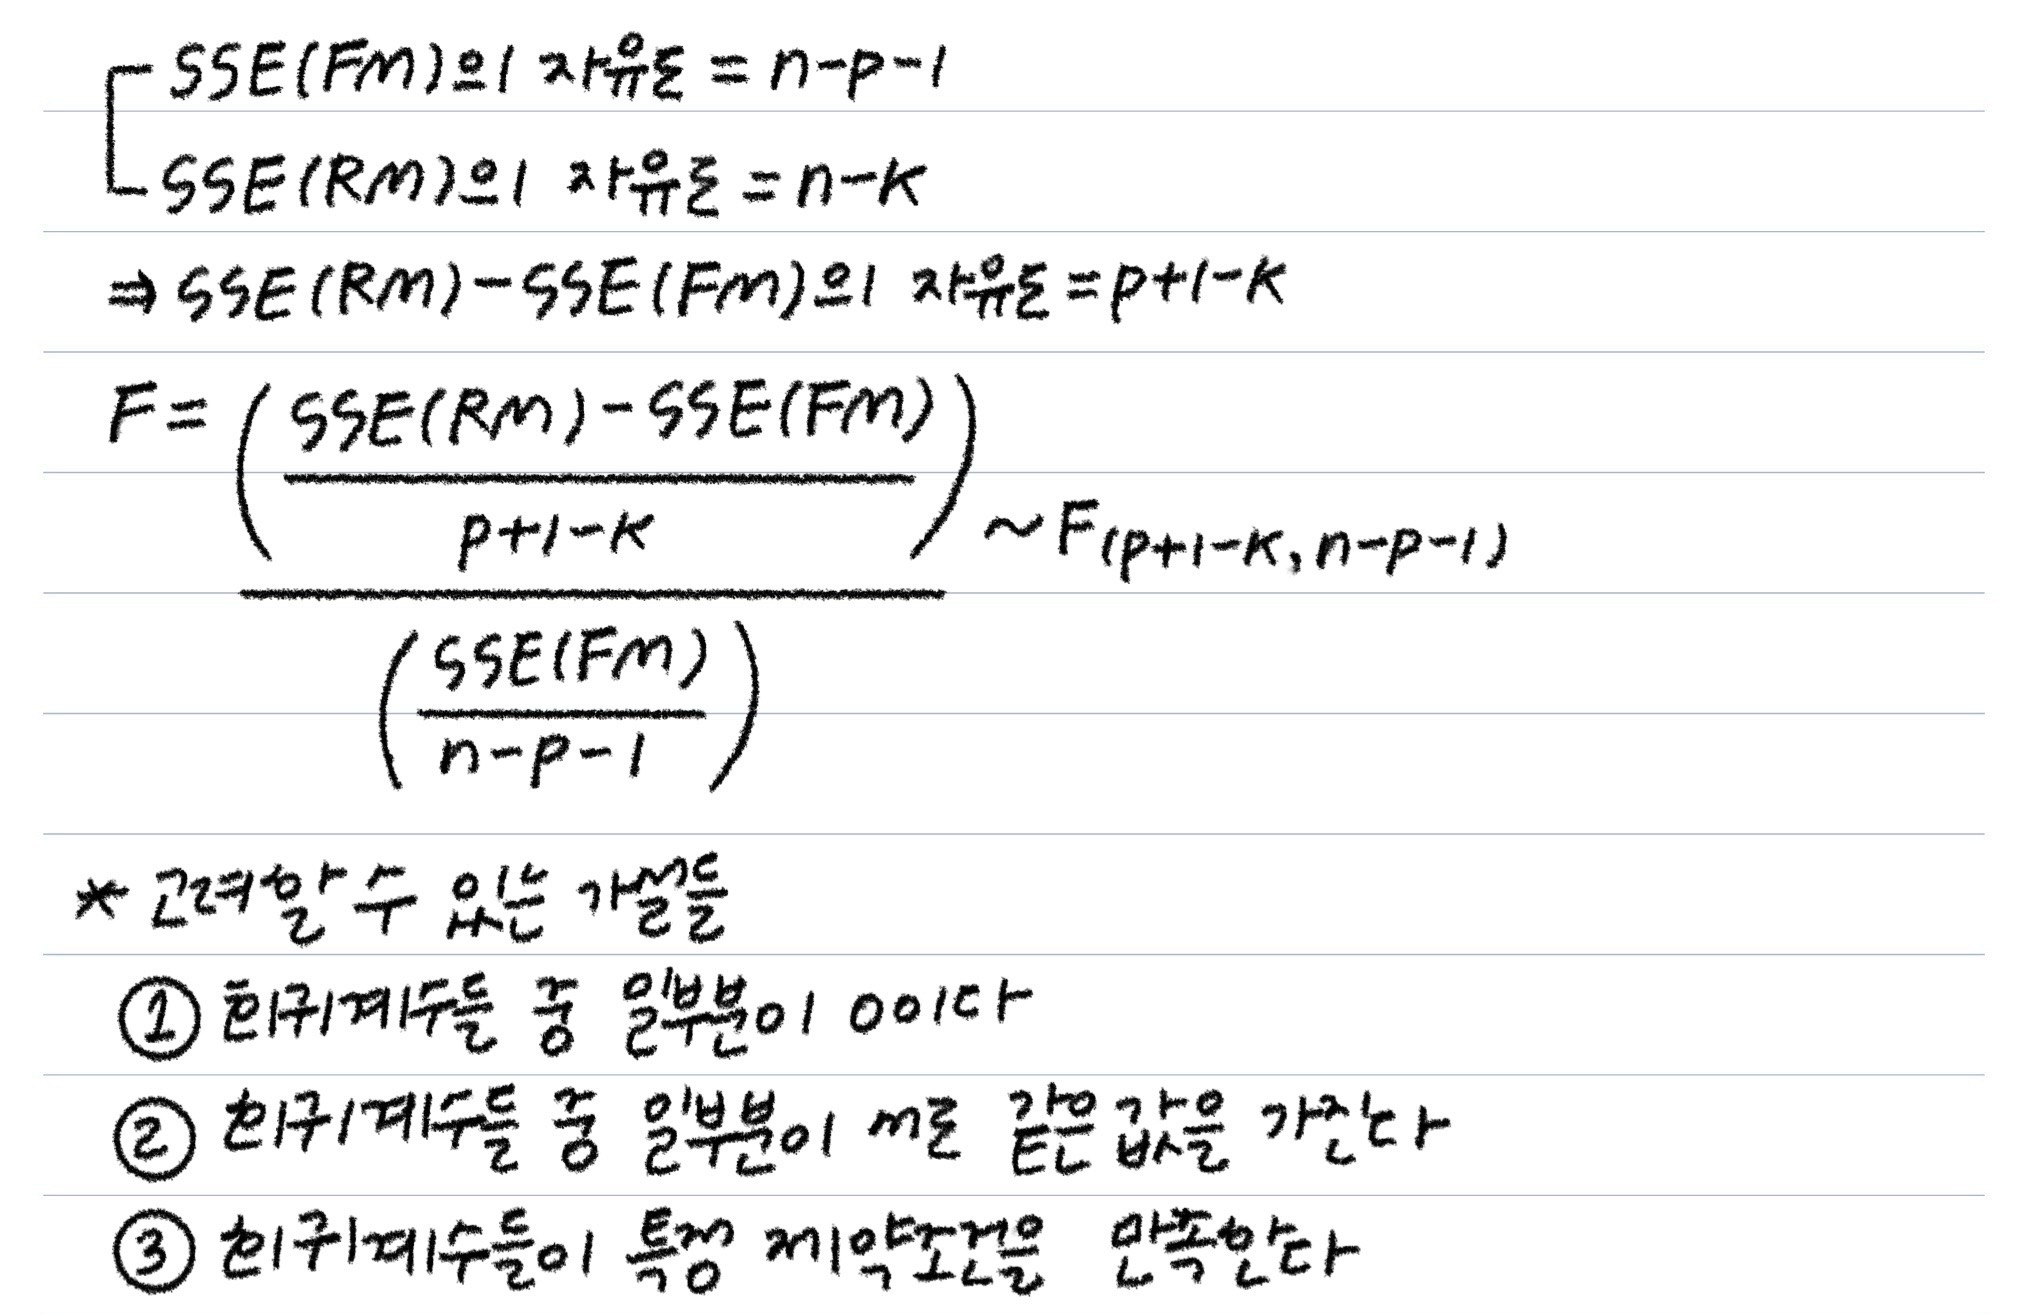 SSE(FM)의 자유도 = n-p-1
SSE(RM)의 자유도 = n-k
⇒ SSE(RM)-SSE(FM)의 자유도 = p+1-k
F = ((SSE(RM)-SSE(FM))/(p+1-k)) / (SSE(FM)/(n-p-1)) ~ F(p+1-k, n-p-1)
* 고려할 수 있는 가설들
① 회귀계수들 중 일부분이 0이다
② 회귀계수들 중 일부분이 서로 같은 값을 가진다
③ 회귀계수들이 특정 제약조건을 만족한다